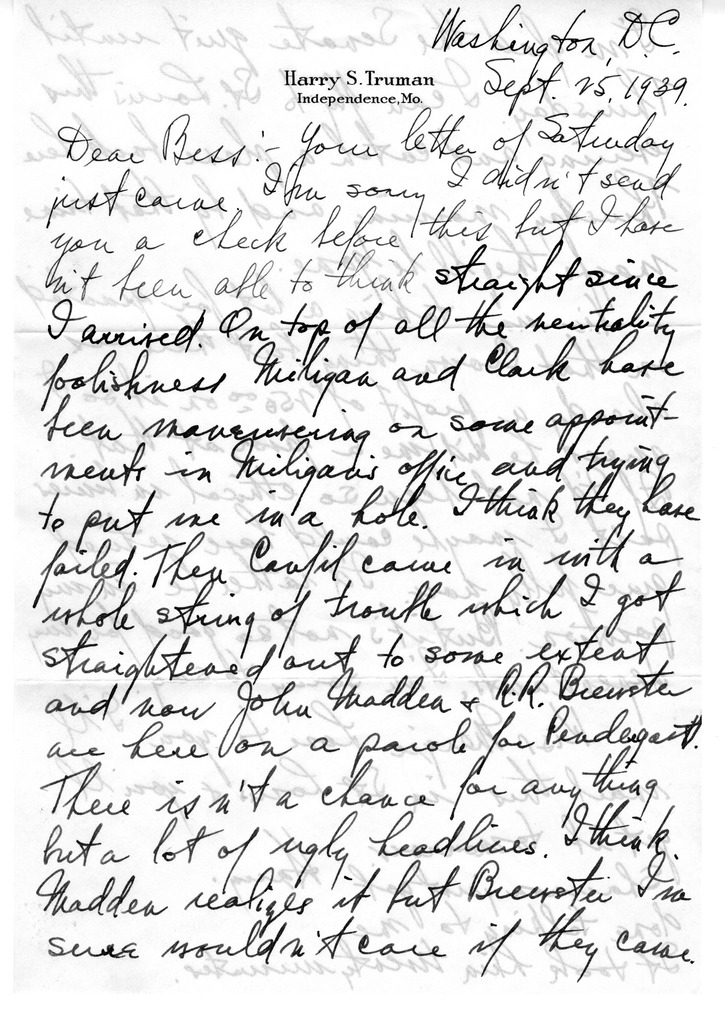 Washington, D.C.
Harry S. Truman
Independence, Mo.
Sept. 25, 1939.
Dear Bess:- Your letter of Saturday
just came. I'm sorry I didn't send
you a check before this but I have
n't been able to think straight since
I arrived. On top of all the neutrality
foolishness Miligan and Clark have
been manuevering on some appoint-
ments in Miligan's office and trying
to put me in a hole. I think they have
failed. Then Canfil came in with a
whole string of trouble which I got
straightened out to some extent
and now John Madden & R.R. Brewster
are here on a parole for Pendergast.
There isn't a chance for anything
but a lot of ugly headlines. I think
Madden realizes it but Brewster I'm
sure wouldn't care if they came.